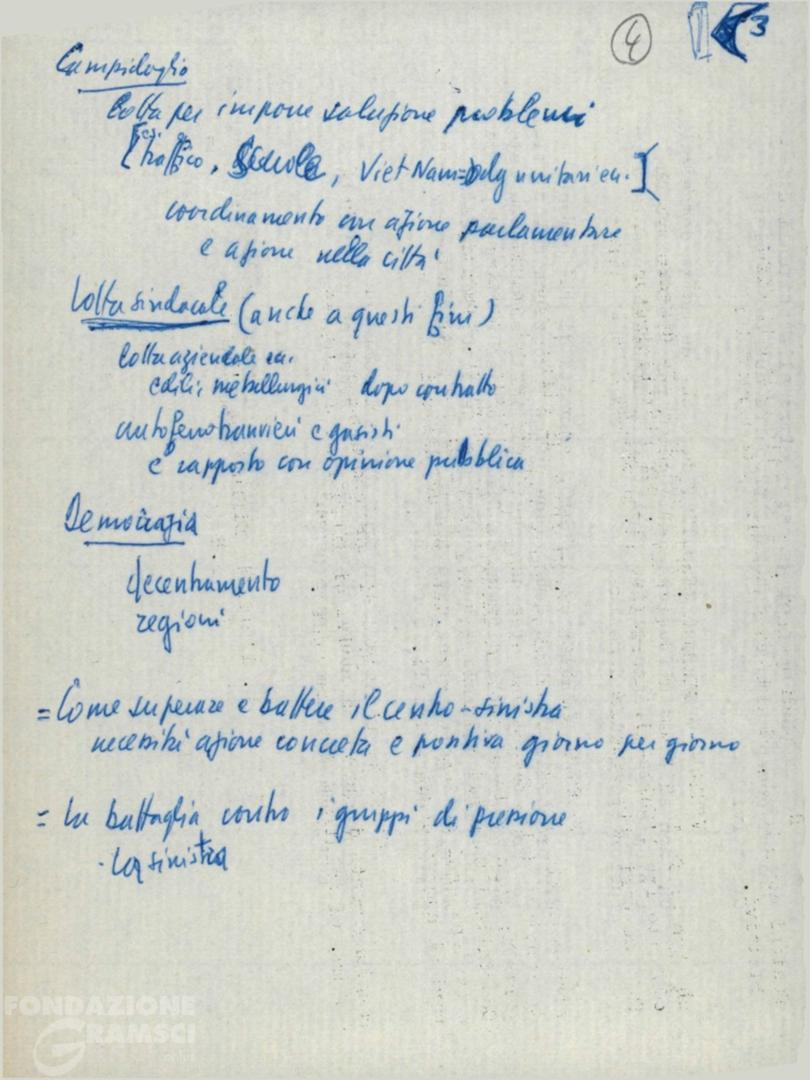 4
3
Campidoglio
Lotta per imporre soluzione problemi
[traffico, scuola, Viet Nam = odg unitari ecc.]
coordinamento con azione parlamentare
e azione nella città
Lotta sindacale (anche a questi fini)
lotta aziendale ecc.
edili, metallurgici dopo contratto
autoferrotranvieri e gasisti
e rapporto con opinione pubblica
Democrazia
decentramento
regioni
= Come superare e battere il centro-sinistra
necessità azione concreta e positiva giorno per giorno
= la battaglia contro i gruppi di pressione
- la sinistra
FONDAZIONE
GRAMSCI